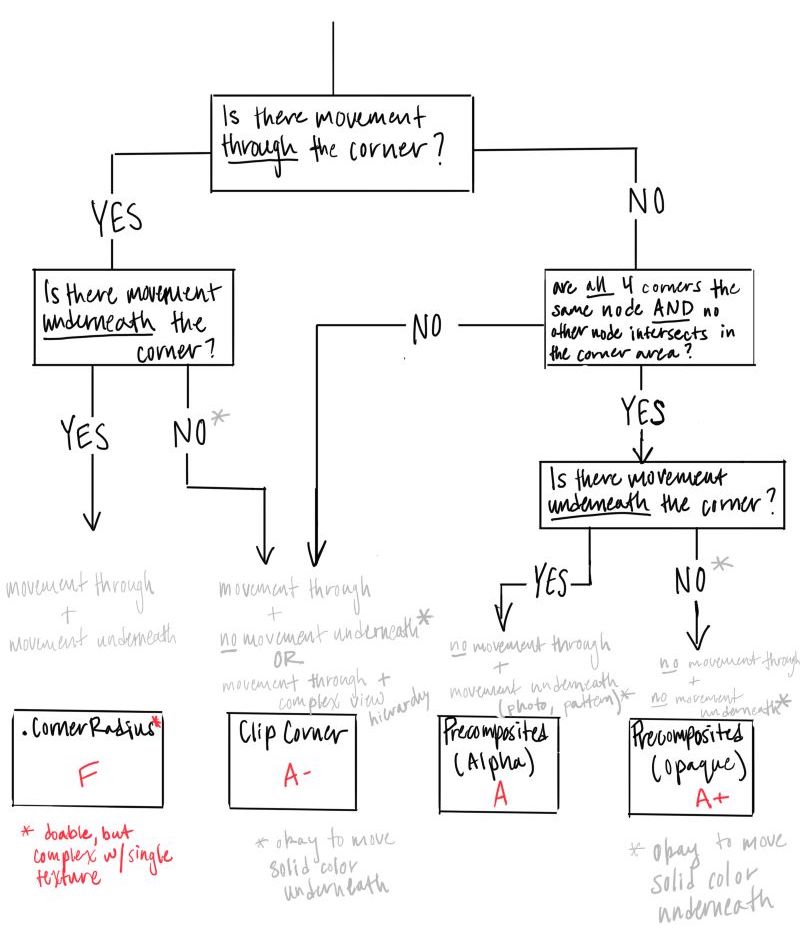 Is there movement
through the corner?
YES
NO
Is there movement
underneath the
corner?
are all 4 corners the
same node AND no
other node intersects in
the corner area?
NO
YES
NO*
YES
Is there movement
underneath the corner?
YES
NO*
movement through
+
movement underneath
movement through
+
no movement underneath*
OR
movement through +
complex view
hierarchy
no movement through
+
movement underneath
(photo, pattern)*
no movement through
+
no movement
underneath*
.CornerRadius*
F
Clip Corner
A-
Precomposited
(Alpha)
A
Precomposited
(opaque)
A+
* doable, but
complex w/single
texture
* okay to move
solid color
underneath
* okay to move
solid color
underneath